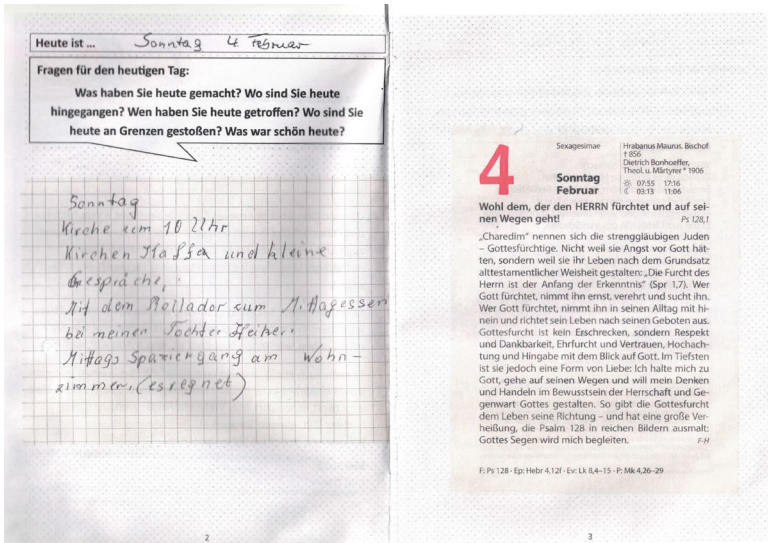 Heute ist ... Sonntag 4. Februar
Fragen für den heutigen Tag:
Was haben Sie heute gemacht? Wo sind Sie heute
hingegangen? Wen haben Sie heute getroffen? Wo sind Sie
heute an Grenzen gestoßen? Was war schön heute?
Sonntag
Kirche um 10 Uhr
Kirchen Kaffa und kleine
Gespräche,
Mit dem Rollador zum M.ttagessen
bei meiner Tochter Heike.
Mittags Spaziergang am Wohn-
zimmer, (es regnet)
2
4
Sonntag
Februar
Sexagesimae
Hrabanus Maurus, Bischof
† 856
Dietrich Bonhoeffer,
Theol. u. Märtyrer * 1906
07:55 17:16
03:13 11:06
Wohl dem, der den HERRN fürchtet und auf sei-
nen Wegen geht! Ps 128,1
„Charedim“ nennen sich die strenggläubigen Juden
– Gottesfürchtige. Nicht weil sie Angst vor Gott hät-
ten, sondern weil sie ihr Leben nach dem Grundsatz
alttestamentlicher Weisheit gestalten: „Die Furcht des
Herrn ist der Anfang der Erkenntnis“ (Spr 1,7). Wer
Gott fürchtet, nimmt ihn ernst, verehrt und sucht ihn.
Wer Gott fürchtet, nimmt ihn in seinen Alltag mit hi-
nein und richtet sein Leben nach seinen Geboten aus.
Gottesfurcht ist kein Erschrecken, sondern Respekt
und Dankbarkeit, Ehrfurcht und Vertrauen, Hochach-
tung und Hingabe mit dem Blick auf Gott. Im Tiefsten
ist sie jedoch eine Form von Liebe: Ich halte mich zu
Gott, gehe auf seinen Wegen und will mein Denken
und Handeln im Bewusstsein der Herrschaft und Ge-
genwart Gottes gestalten. So gibt die Gottesfurcht
dem Leben seine Richtung – und hat eine große Ver-
heißung, die Psalm 128 in reichen Bildern ausmalt:
Gottes Segen wird mich begleiten. F-H
F: Ps 128 · Ep: Hebr 4,12f · Ev: Lk 8,4–15 · P: Mk 4,26–29
3